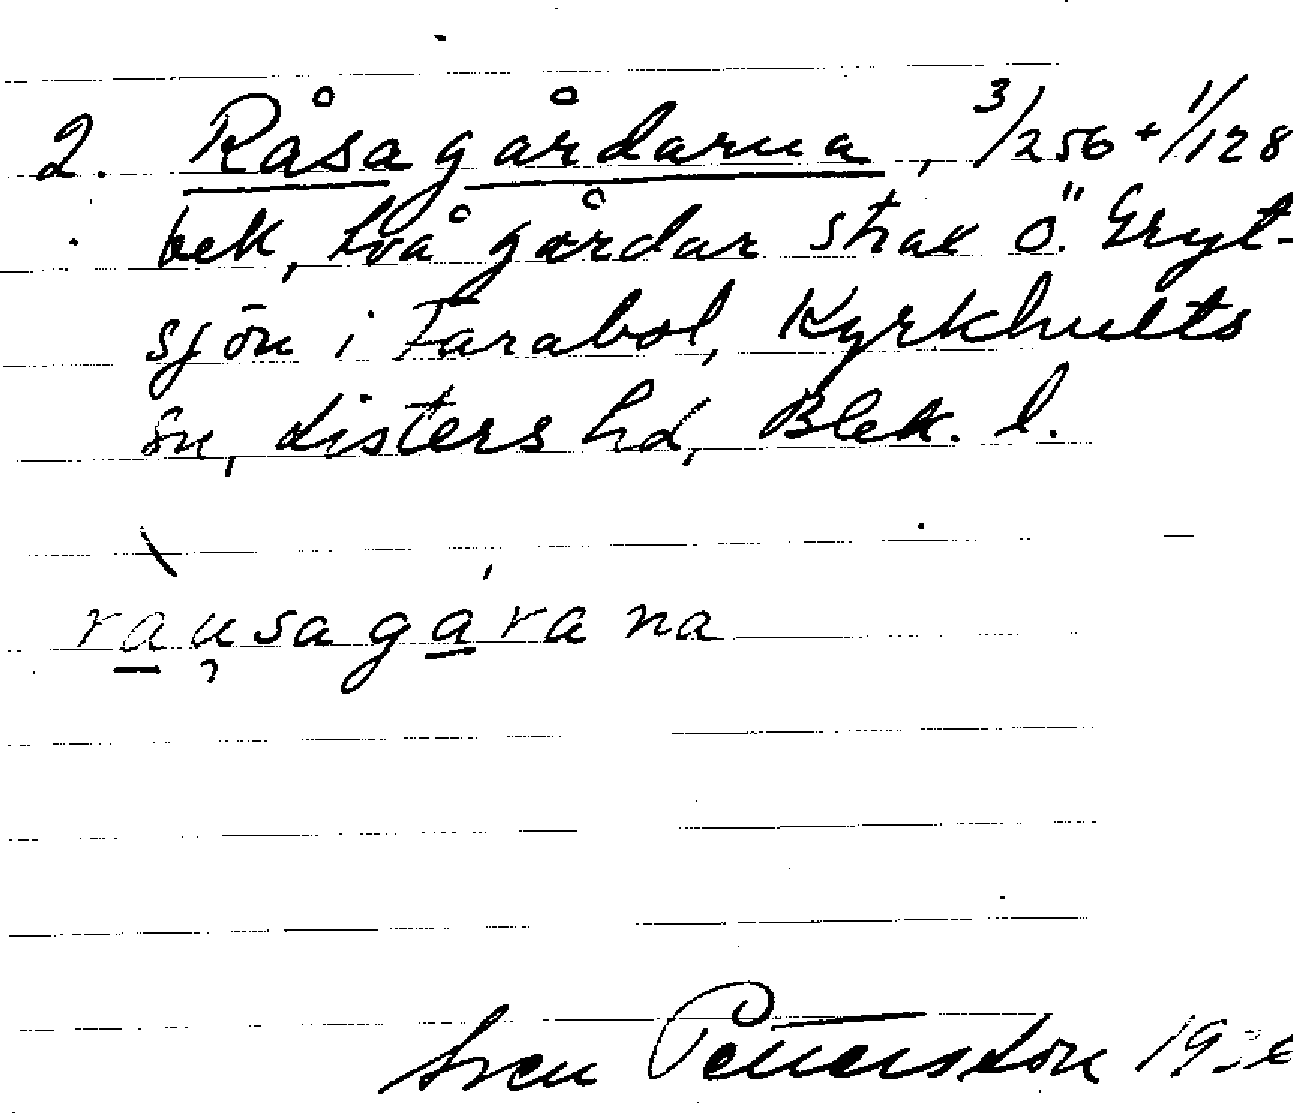 2. Råsagårdarna, 3/256 + 1/128
bek, två gårdar strax ö. Gryt-
sjön i Farabol, Kyrkhults
sn, Listers hd, Blek. l.
rausagárana
Sven Pettersson